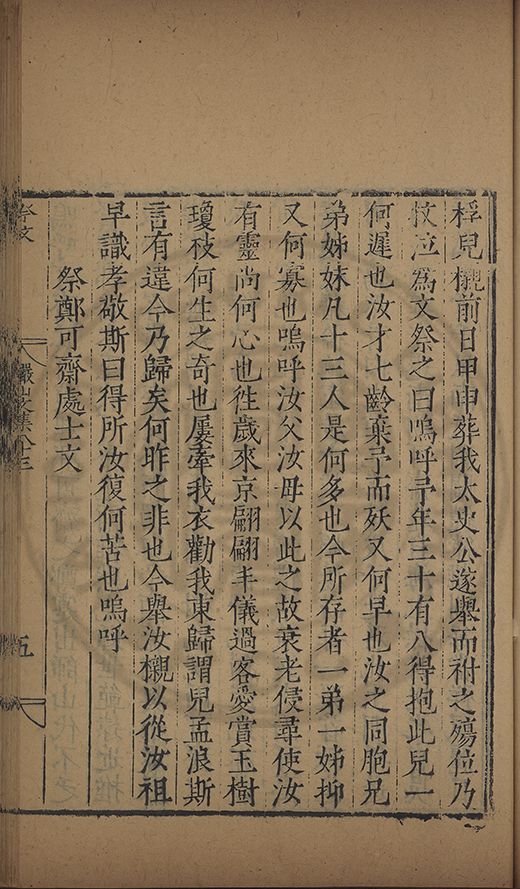 桴兒櫬前日甲申葬我太史公遂舉而祔之殤位乃
忟泣爲文祭之曰嗚呼予年三十有八得抱此兒一
何遲也汝才七齡棄予而殀又何早也汝之同胞兄
弟姊妹凡十三人是何多也今所存者一弟一姊抑
又何寡也嗚呼汝父汝母以此之故衰老侵尋使汝
有靈尚何心也徃歲來京翩翩丰儀過客愛賞玉樹
瓊枝何生之奇也屢牽我衣勸我東歸謂兒孟浪斯
言有違今乃歸矣何昨之非也今舉汝櫬以從汝祖
早識孝敬斯曰得所汝復何苦也嗚呼
祭鄭可齋處士文
儼山文集八十三
五